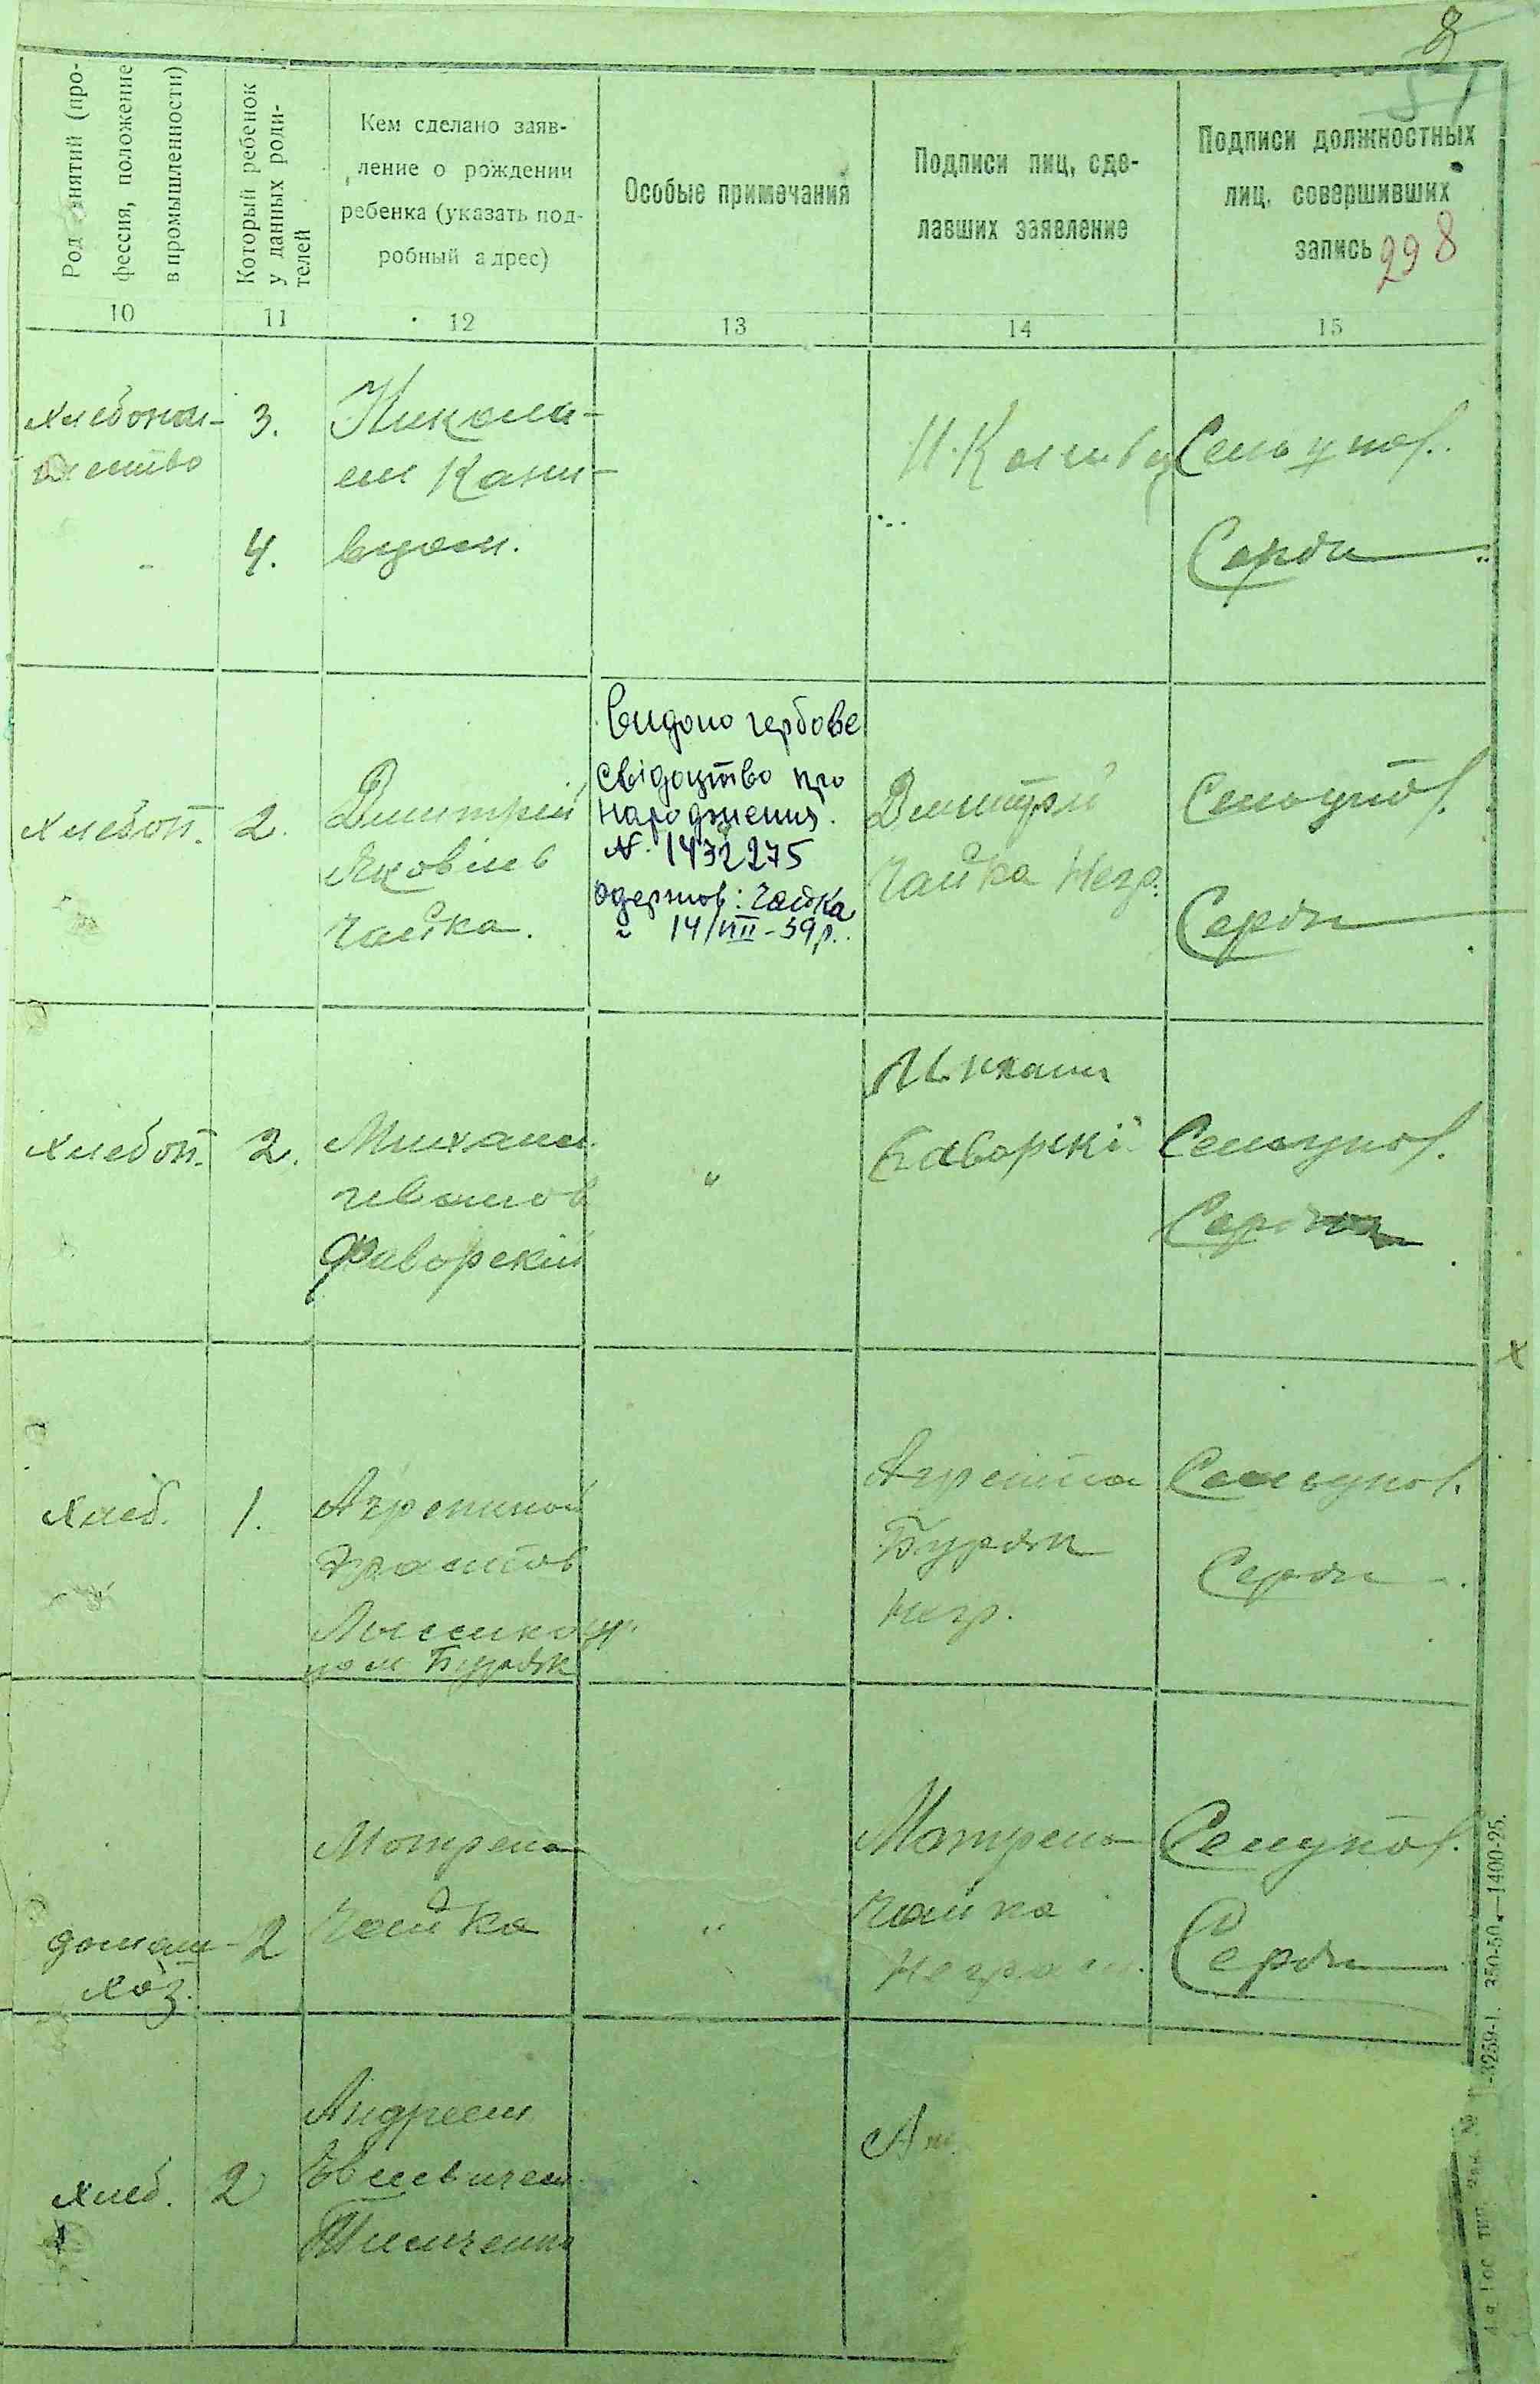 8
51
Род занятий (про-
фессия, положение
в промышленности)
Который ребенок
у данных роди-
телей
Кем сделано заяв-
ление о рождении
ребенка (указать под-
робный адрес)
Особые примечания
Подписи лиц, сде-
лавших заявление
Подписи должностных
лиц, совершивших
запись
298
10 11 12 13 14 15
хлебопа-
шество
3.
4.
Никола-
ем Кани-
вцом.
Сельупол.
Серди
хлебоп.
2.
Дмитрій
Яковлев
Чайка.
Видано гербове
свідоцтво про
народження.
N. 1432275
одержав: Чайка
14/VIII-39р.
Дмитрий
Чайка Негр.
Сельупол.
Серди
хлебоп.
2.
Михаил
Фаворскій
"
Михаил
Фаворскі
Сельупол.
хлеб.
1.
Агрепиной
Бурдяк
Агрепина
Бурдяк
Негр.
Сельупол.
Серди
домаш-
хоз.
2
Мотрена
Чайка
"
Мотрена
Чайка
Неграм.
Сельупол.
Серди
хлеб.
2
Андреем
Тимченко
Ан
3259-1. 350-50.—1400-25.